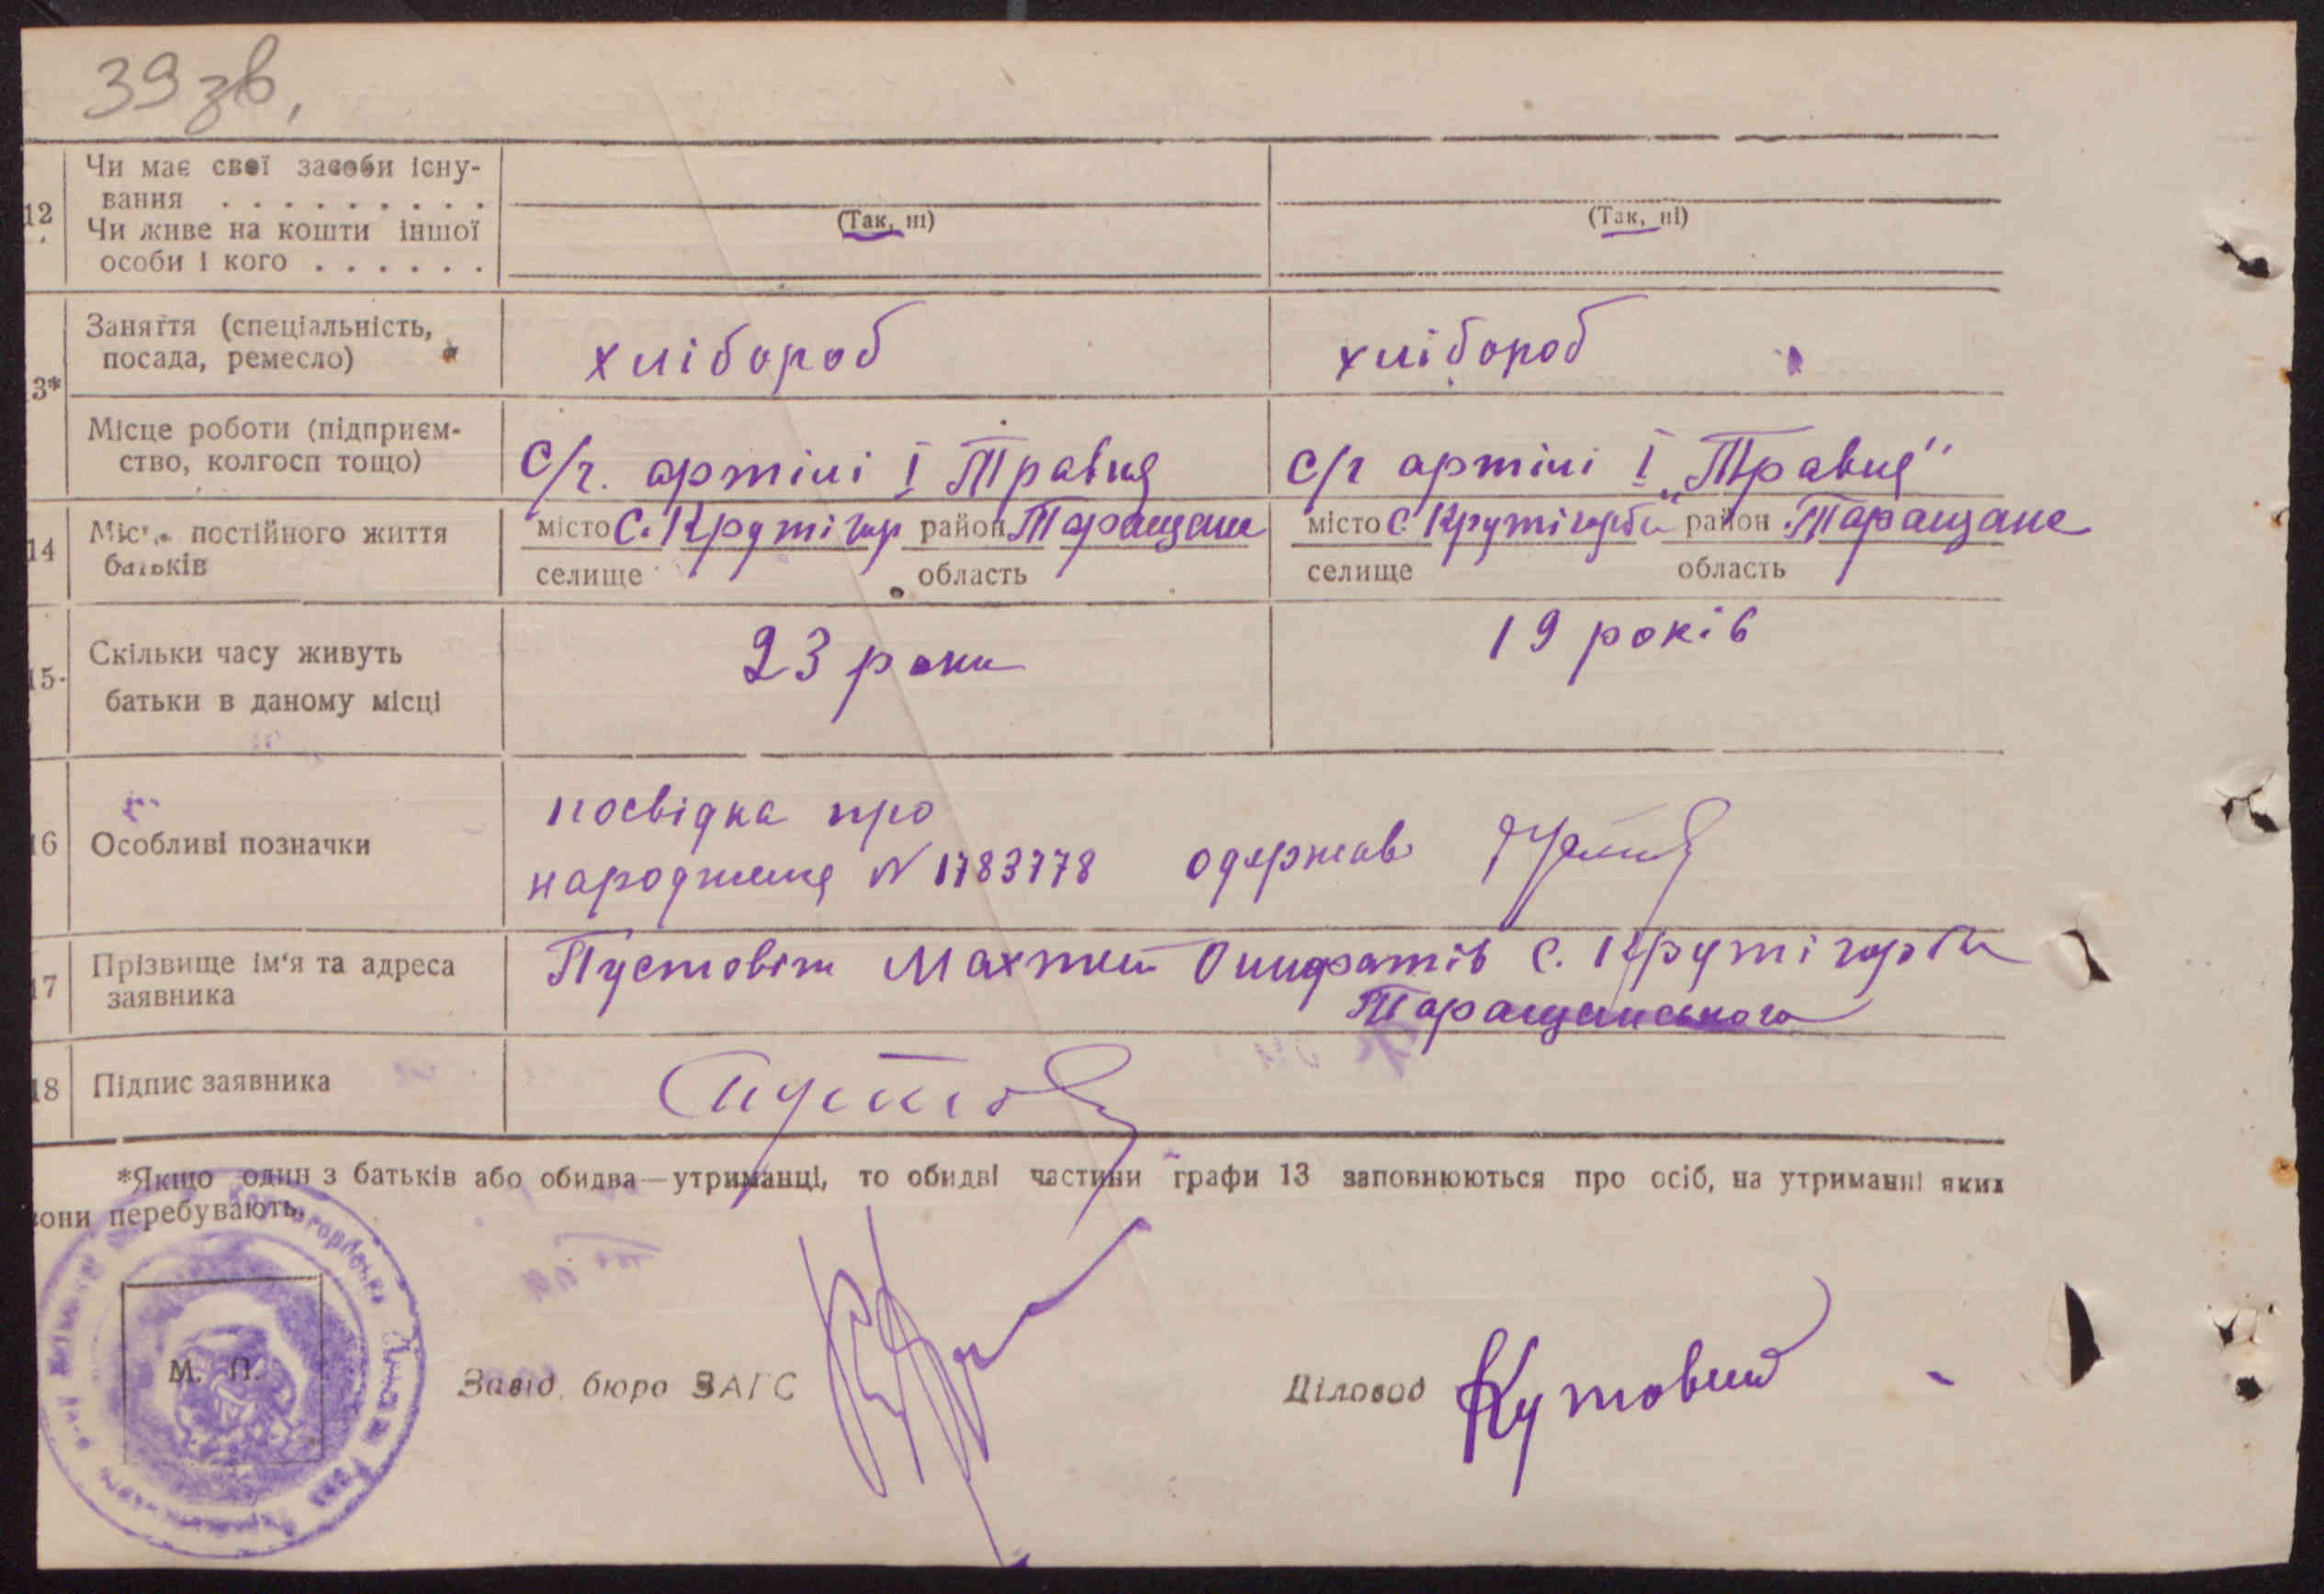 39 зв.
12 Чи має свої засоби існу-
вання . . . . . . . . . .
Чи живе на кошти іншої
особи і кого . . . . . .
(Так, ні) (Так, ні)
3* Заняття (спеціальність,
посада, ремесло)
хлібороб хлібороб
Місце роботи (підприєм-
ство, колгосп тощо)
С/г. артілі І Травня с/г артілі І „Травня"
14 Місце постійного життя
батьків
місто С. Крутігор район Таращане місто С. Крутігорби район Таращане
селище область селище область
15. Скільки часу живуть
батьки в даному місці
23 роки 19 років
16 Особливі позначки
посвідка про
народження N 1783778 одержав
17 Прізвище ім'я та адреса
заявника
Пустовіт Махтей с. Крутігорби
Таращанського
18 Підпис заявника
*Якщо один з батьків або обидва—утриманці, то обидві частини графи 13 заповнюються про осіб, на утриманні яких
вони перебувають.
М. П.
Завід. бюро ЗАГС
Діловод Кутовий